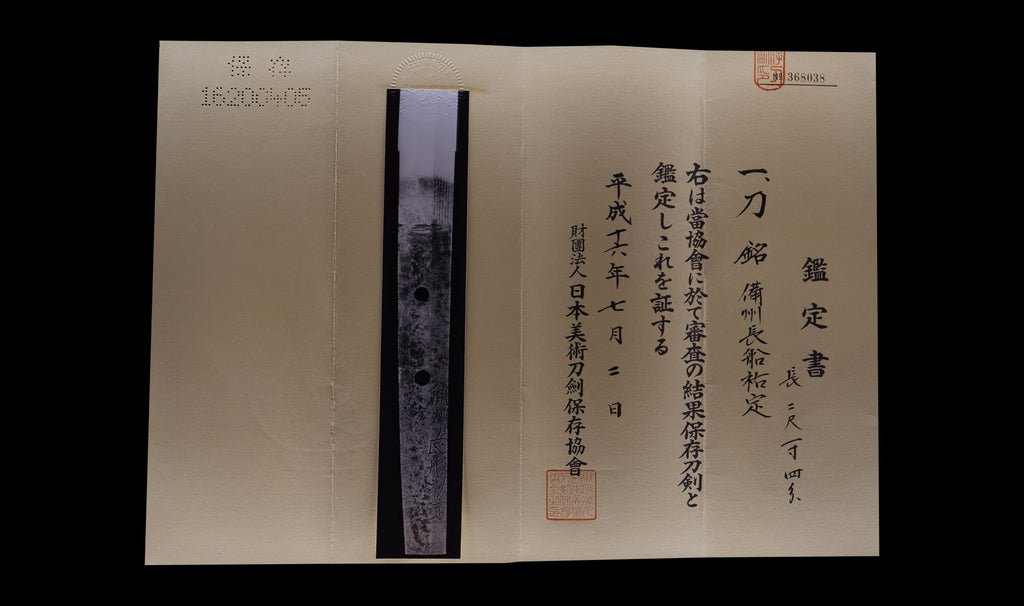 № 368038
鑑定書
一、刀 銘 備州長船祐定
長 二尺一寸四分
右は當協會に於て審査の結果保存刀剣と
鑑定しこれを証する
平成十六年七月二日
財團法人 日本美術刀劍保存協會
保存
16200405